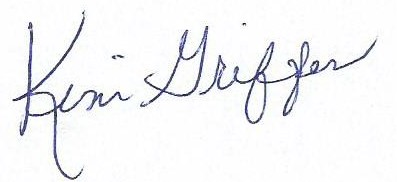 Kimi Griffer